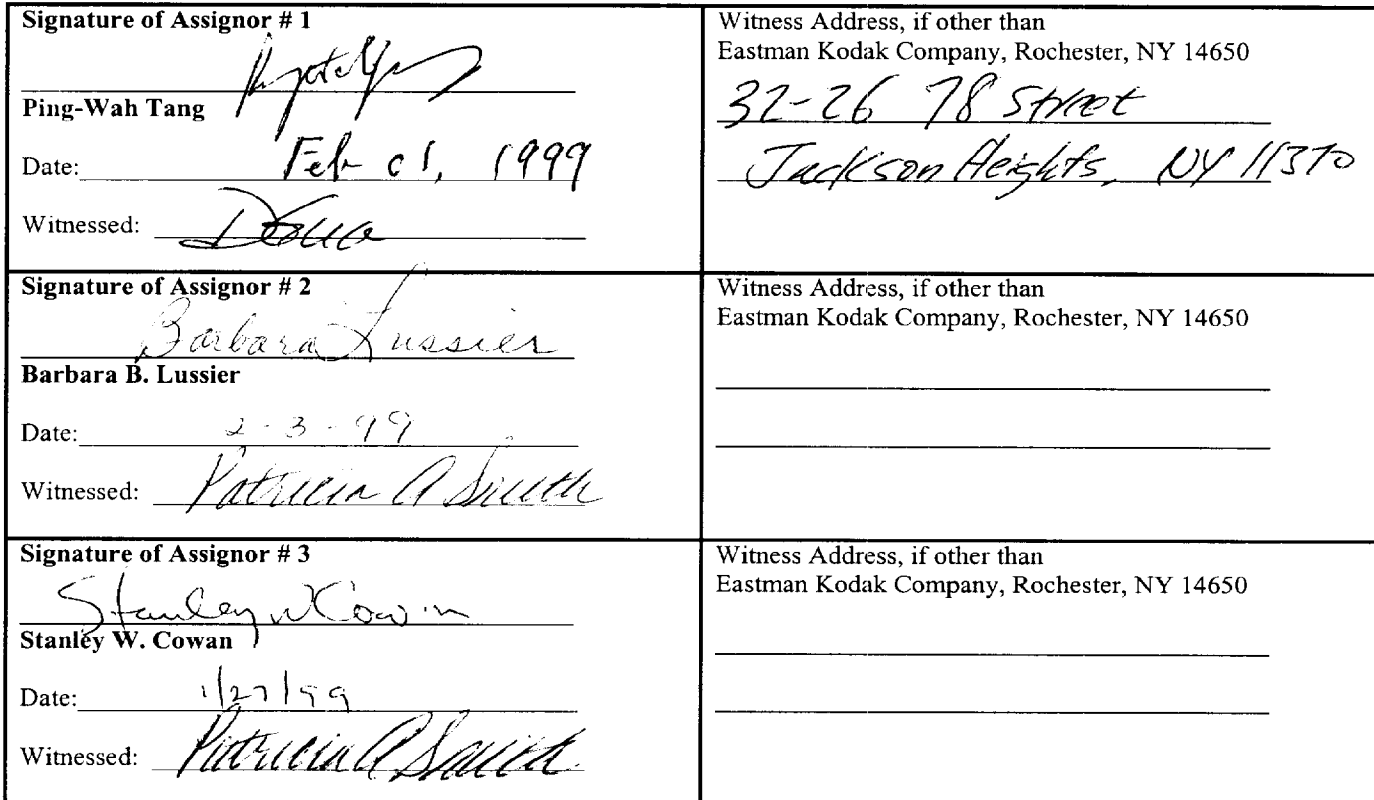 Signature of Assignor # 1
Ping-Wah Tang
Date: Feb 01, 1999
Witnessed:
Witness Address, if other than
Eastman Kodak Company, Rochester, NY 14650
32-26 78 Street
Jackson Heights, NY 11370
Signature of Assignor # 2
Barbara Lussier
Barbara B. Lussier
Date: 2-3-99
Witnessed: Patricia A Smith
Witness Address, if other than
Eastman Kodak Company, Rochester, NY 14650
Signature of Assignor # 3
Stanley W Cowan
Stanley W. Cowan
Date: 1/27/99
Witnessed: Patricia A Smith
Witness Address, if other than
Eastman Kodak Company, Rochester, NY 14650